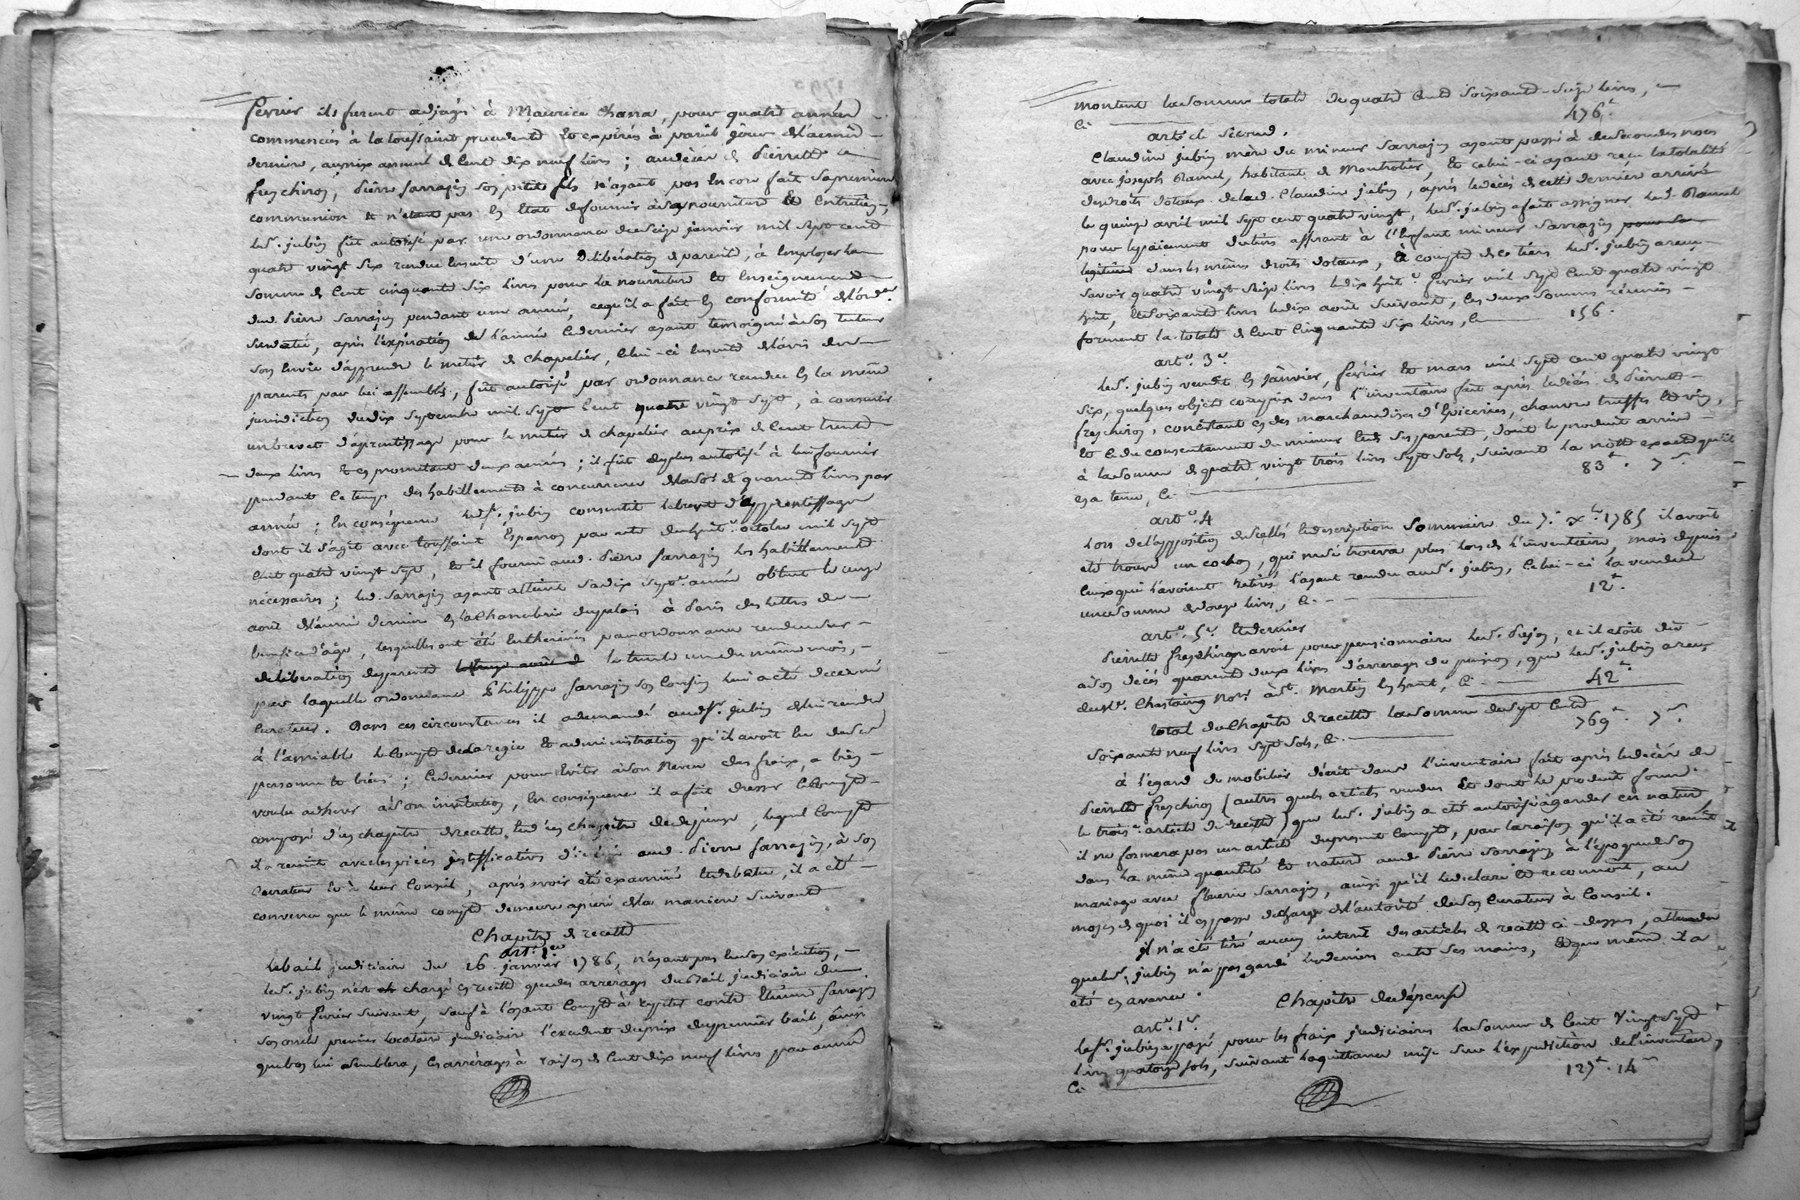 fevrier ils furent adjugés à Maurice Chana, pour quatre années
commencées à la toussaint precedente et expirés à pareil jour de l'année
derniere, au prix annuel de cent dix neuf livres ; au décès de Pierrette
freschinos, Pierre Sarrazin son petit fils n'ayant pas encore fait sa premiere
communion et n'etant pas en Etat de fournir à sa nourriture et entretien,
led. S.r jubin fût autorisé par une ordonnance du seize janvier mil sept cent
quatre vingt six rendue ensuite d'une Deliberation de parents, à employer la
somme de Cent cinquante six livres pour la nourriture et Enseignement
dud. Pierre Sarrazin pendant une année, ce qu'il a fait en conformité de l'ord.ce
susdatée, après l'expiration de l'année ce dernier ayant temoigné à son tuteur
son envie d'apprendre le metier de chapelier, celui-ci ensuite de l'avis des
parents par lui assemblés, fût autorisé par ordonnance rendue en la même
juridiction du dix septembre mil sept cent quatre vingt sept, à consentir
un brevet d'aprentissage pour le metier de chapelier au prix de cent trente
deux livres et en promettant deux années ; il fût de plus autorisé à lui fournir
pendant ce temps des habillements à concurrence de la so.e de quarante livres par
année ; En conséquence led. S.r jubin consentit le brevet d'apprentissage
dont il s'agit avec toussaint Esparron par acte du huit octobre mil sept
cent quatre vingt sept, et il fournit aud. Pierre Sarrazin les habillements
nécessaires ; led. Sarrazin ayant atteint sa dix sept.e année obtint le onze
août de l'année derniere en la chancelerie du palais à Paris des lettres de
benefice d'age, lesquelles ont été Entherinées par ordonnance rendue sur
deliberation de parents le trente un du même mois,
par laquelle ordonnance Philippe Sarrazin son cousin lui a été decerné
Curateur. Dans ces circonstances il a demandé aud. S.r jubin de lui rendre
à l'amiable le Compte de la regie et administration qu'il avoit eue de sa
personne et biens ; ce dernier pour Eviter à son Neveu des fraix, a bien
voulu adherer à son invitation, En conséquence il a fait dresser ce Compte
composé d'un chapitre de recette et d'un chapitre de depense, lequel Compte
il a remit avec les pieces justifficatives aud. Pierre Sarrazin, à son
Curateur et à leur Conseil, après avoir été examiné et debatu, il a été
convenu que le même compte demeure apuré de la maniere suivante
Chapitre de recette
art. 1.er
Le bail judiciaire du 16 janvier 1786, n'ayant pas eu son exécution,
led. S.r jubin n'est chargé en recette que des arrerages du bail judiciaire du
vingt fevrier suivant, sauf à l'oyant Compte à repeter contre Etienne Sarrazin
son oncle premier locataire judiciaire l'excedent du prix du premier bail, ainsi
que bon lui semblera, les arrérages à raison de cent dix neuf livres par année
montent la somme totale de quatre Cent soixante-seize livres,
Ci 476.#
art.e second.
Claudine jubin mere du mineur Sarrazin ayant passé à de secondes noces
avec joseph Ramel, habitant de Montrotier, et celui-ci ayant reçu la totalité
des droits dotaux de lad. Claudine jubin, après le décès de cette derniere arrivé
le quinze avril mil sept cent quatre vingt, led. S.r jubin a fait assigner led. Ramel
pour le paiement du tiers afférant à l'Enfant mineur Sarrazin pour sa
legitime dans les mêmes droits dotaux, à compte de ce tiers led. S.r jubin a reçu
savoir quatre vingt seize livres le dix huit fevrier mil sept cent quatre vingt
huit, et soixante livres le dix août suivant, les deux sommes réunies
forment la totale de Cent Cinquante six livres, Ci 156.
art.e 3.e
Led. S.r jubin vendit en janvier, fevrier et mars mil sept cent quatre vingt
six, quelques objets compris dans l'inventaire fait après le décès de Pierrette
freschinos, consistant en des marchandises d'Epiceries, chanvre truffes et vin,
et ce du consentement du mineur et de ses parents, dont le produit arrive
à la somme de quatre vingt trois livres sept sols, suivant la notte exacte qu'il
en a tenu, Ci 83.# 7.s
art.e 4
Lors de l'apposition des scellés et description sommaire du 7. x.bre 1785 il avoit
eté trouvé un cochon, qui ne se trouva plus lors de l'inventaire, mais depuis
ceux qui l'avoient retiré l'ayant rendu au S.r jubin, celui-ci l'a vendu
une somme de douze livres, Ci 12.#
art.e 5.e et dernier
Pierrette freschinos avoit pour pensionnaire led. S.r Pejon, et il etoit dû
à son décès quarente deux livres d'arrerages de pension, que led. S.r jubin a reçu
du S.r Chastaing No.re à S.t Martin en haut, Ci 42.#
total du Chapitre de recette la somme de sept Cent
soixante neuf livres sept sols, Ci 769.# 7.s
à l'égard du mobilier décrit dans l'inventaire fait après le décès de
Pierrette freschinos (autres que les articles vendus et dont le produit forme
le trois.e article de recette) que led. S.r jubin a été autorisé à garder en nature
il ne formera pas un article du present Compte, par la raison qu'il a été remit
dans la même quantité et nature aud. Pierre Sarrazin à l'époque de son
mariage avec fleurie Sarrazin, ainsi qu'il le declare et reconnoit, au
moyen de quoi il en passe decharge de l'autorité de son Curateur à Conseil.
Il n'a été tiré aucun interet des articles de recette ci-dessus, attendu
que led. S.r jubin n'a pas gardé les deniers entre ses mains, et que même il a
été en avance.
Chapitre de dépense
art.e 1.er
Led. S.r jubin a payé pour les fraix judiciaires la somme de Cent Vingt sept
livres quatorze sols, suivant la quittance mise sur l'expedition de l'inventaire
Ci 127.# 14.s